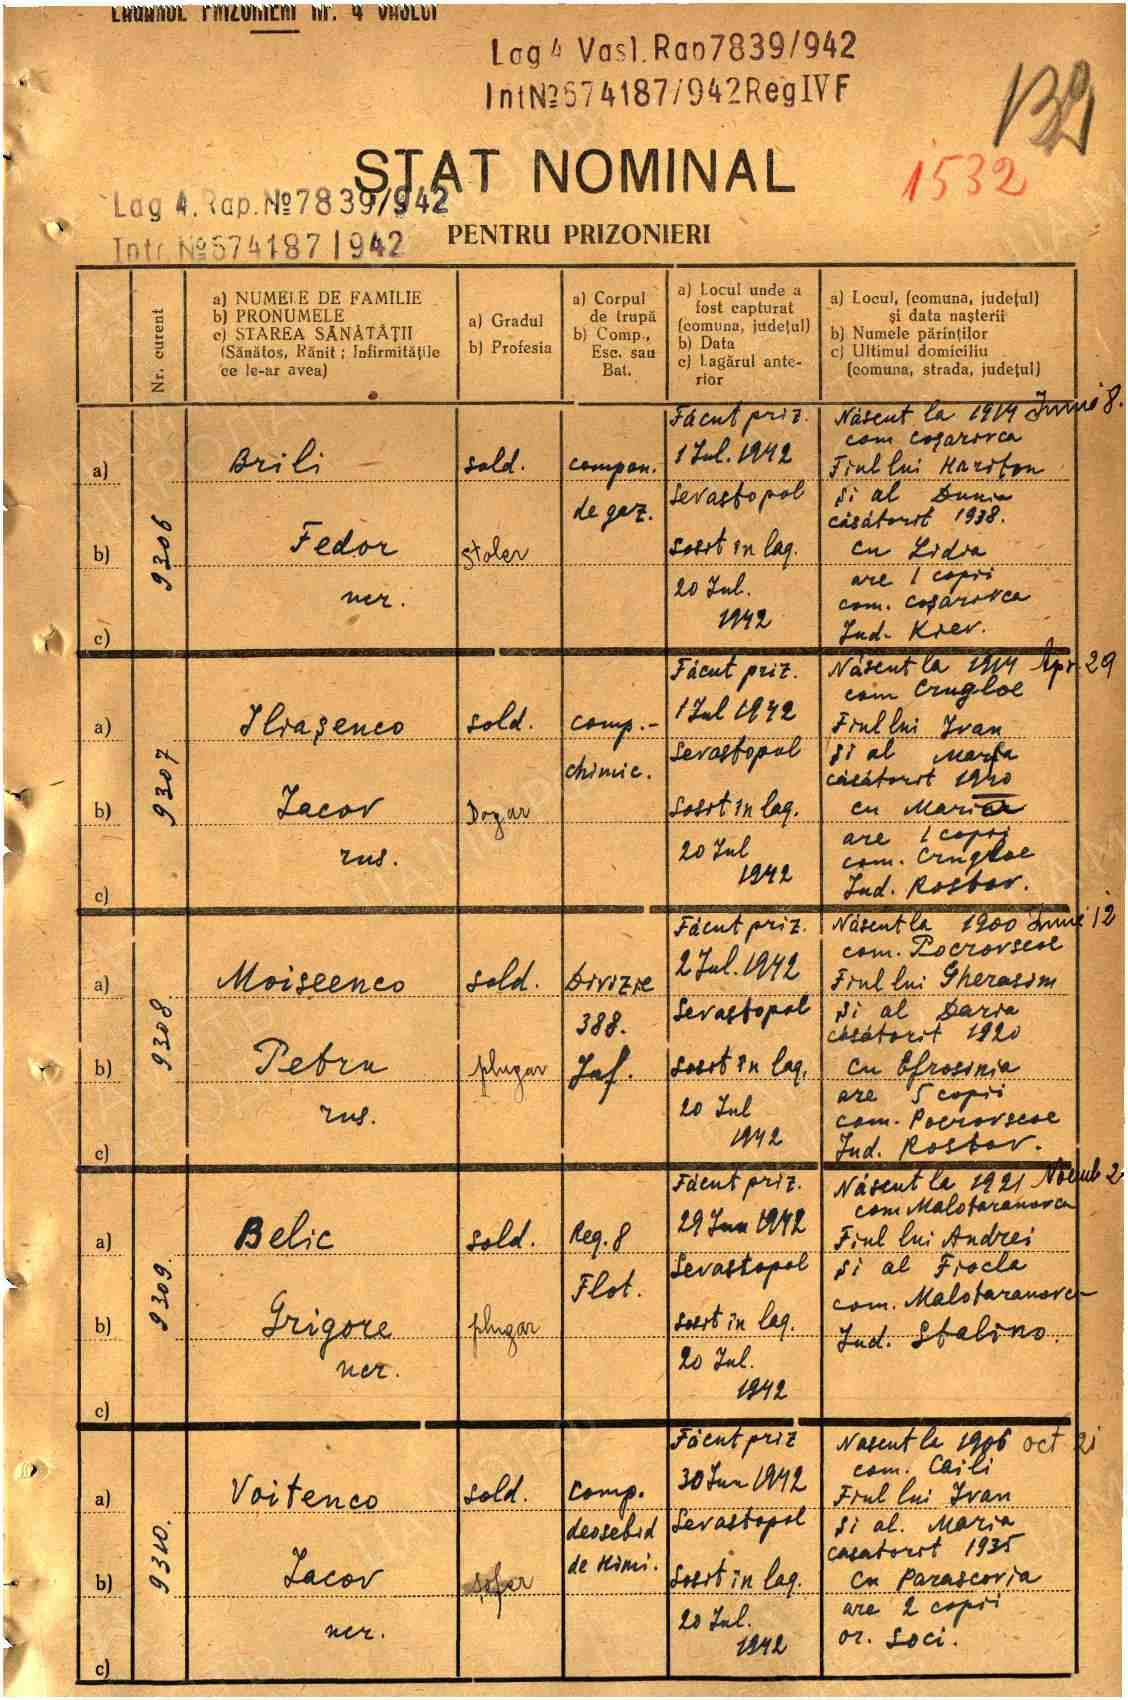 LAGĂRUL PRIZONIERI Nr. 4 VASLUI
Lag 4 Vasl. Rap 7839/942
Int № 674187/942 Reg IV F
1532
STAT NOMINAL
Lag 4. Rap. № 7839/942
Intr № 674187/942
PENTRU PRIZONIERI
Nr. curent
a) NUMELE DE FAMILIE
b) PRONUMELE
c) STAREA SĂNĂTĂȚII
(Sănătos, Rănit ; Infirmitățile
ce le-ar avea)
a) Gradul
b) Profesia
a) Corpul
de trupă
b) Comp.,
Esc. sau
Bat.
a) Locul unde a
fost capturat
(comuna, județul)
b) Data
c) Lagărul ante-
rior
a) Locul, (comuna, județul)
și data nașterii
b) Numele părinților
c) Ultimul domiciliu
(comuna, strada, județul)
a)
b)
c)
9306
Brili
Fedor
ucr.
sold.
stoler
compan.
de gaz.
Făcut priz.
1 Iul. 1942
Sevastopol
Sosit în lag.
20 Iul.
1942
Născut la 1914 Iunie 8.
com coșarovca
Fiul lui Hariton
și al Dunia
căsătorit 1938.
cu Lidia
are 1 copii
com. coșarovca
Jud. Kiev.
a)
b)
c)
9307
Iliașenco
Iacov
rus.
sold.
Dogar
comp.-
chimic.
Făcut priz.
1 Iul 1942
Sevastopol
Sosit în lag.
20 Iul
1942
Născut la 1914 Apr. 29
com Crugloe
Fiul lui Ivan
și al Maria
căsătorit 1940
cu Maria
are 1 copii
com. Crugloe
Jud. Rostov.
a)
b)
c)
9308.
Moiseenco
Petru
rus.
sold.
plugar
Divizie
388.
Inf.
Făcut priz.
2 Iul. 1942
Sevastopol
Sosit în lag.
20 Iul
1942
Născut la 1900 Iunie 12
com. Pocrovscoe
Fiul lui Gherasim
și al Daria
căsătorit 1920
cu Efrosinia
are 5 copii
com. Pocrovscoe
Jud. Rostov.
a)
b)
c)
9309.
Belic
Grigore
ucr.
sold.
plugar
Reg. 8
Flot.
Făcut priz.
29 Iun 1942
Sevastopol
Sosit în lag.
20 Iul.
1942
Născut la 1921 Noemb 2
com Malotaranovca
Fiul lui Andrei
și al Fiocla
com. Malotaranovca
Jud. Stalino.
a)
b)
c)
9310.
Voitenco
Iacov
ucr.
sold.
șofer
comp.
deosebid
de Himi.
Făcut priz
30 Iun 1942
Sevastopol
Sosit în lag.
20 Iul.
1942
Nascut la 1906 oct 21
com. Caili
Fiul lui Ivan
și al. Maria
casatorit 1935
cu Parascovia
are 2 copii
or. Soci.